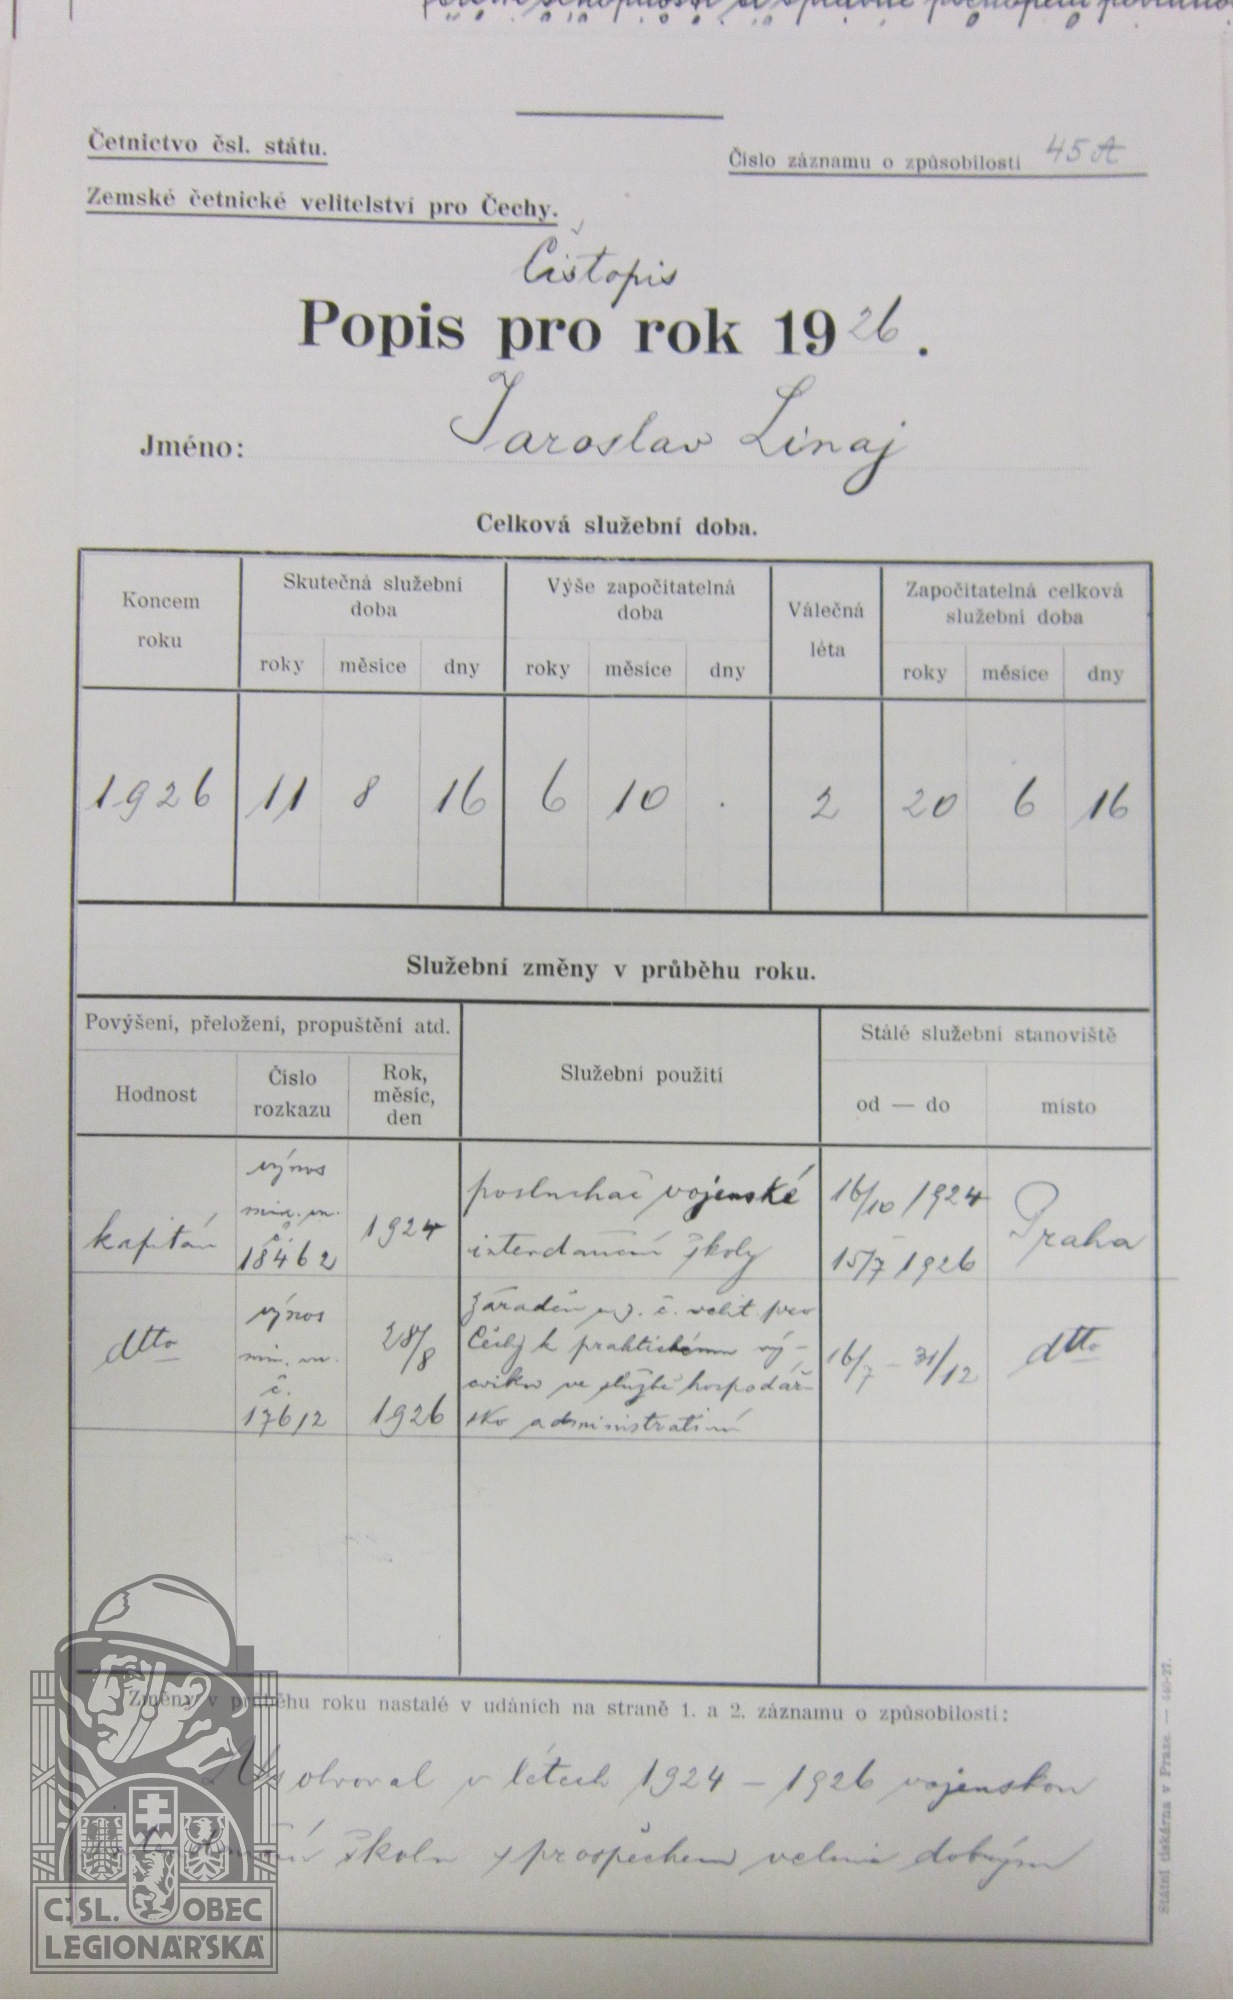 Četnictvo čsl. státu.
Číslo záznamu o způsobilosti 45 A
Zemské četnické velitelství pro Čechy.
Čistopis
Popis pro rok 1926.
Jméno: Jaroslav Linaj
Celková služební doba.
Koncem roku
Skutečná služební doba
Výše započitatelná doba
Válečná léta
Započitatelná celková služební doba
roky měsíce dny roky měsíce dny roky měsíce dny
1926 11 8 16 6 10 . 2 20 6 16
Služební změny v průběhu roku.
Povýšení, přeložení, propuštění atd.
Služební použití
Stálé služební stanoviště
Hodnost
Číslo rozkazu
Rok, měsíc, den
od — do
místo
kapitán
výnos
min. vn.
č.
18462
1924
posluchač vojenské
intendanční školy
16/10 1924
–
15/7 1926
Praha
dtto
výnos
min. vn.
č.
17612
28/8
1926
zařaděn u z. č. velit. pro
Čechy k praktickému vý-
cviku ve službě hospodář-
sko administrativní
16/7 – 31/12
dtto
Změny v průběhu roku nastalé v udáních na straně 1. a 2. záznamu o způsobilosti:
Absolvoval v letech 1924 – 1926 vojenskou
školu s prospěchem velmi dobrým
Státní tiskárna v Praze. — 440-27.
ČSL. OBEC
LEGIONÁŘSKÁ